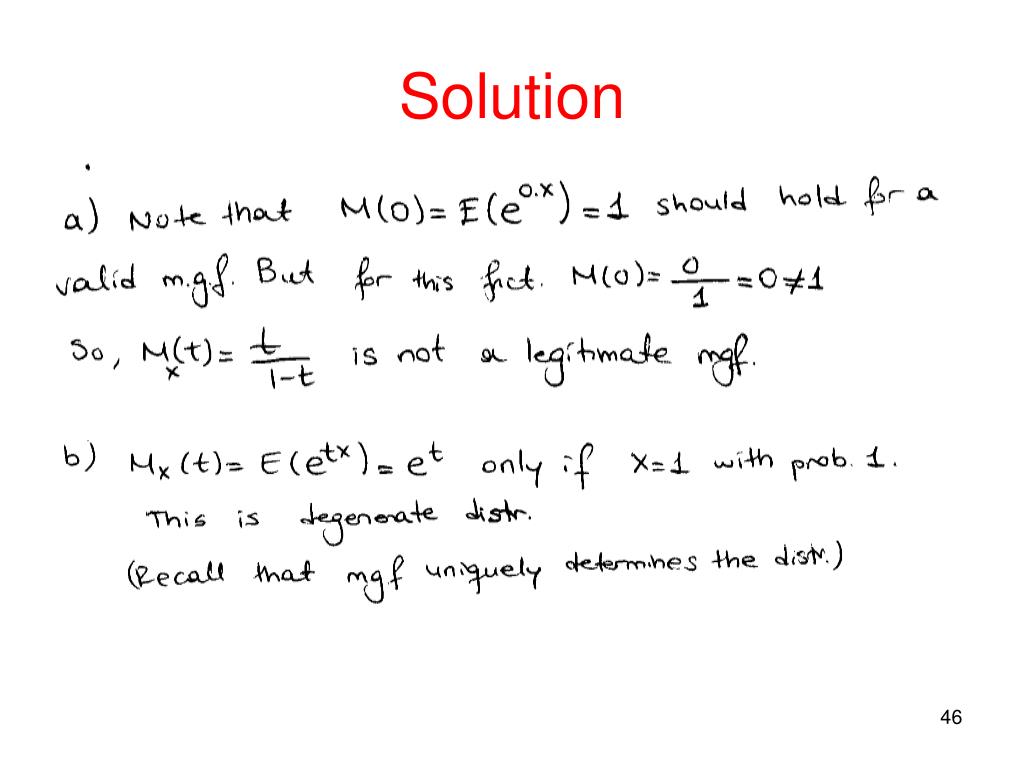 Solution
a) Note that M(0)= E(e^{0.x}) = 1 should hold for a
valid m.g.f. But for this fnct. M(0)= 0/1 = 0 ≠ 1
So, M_x(t) = t/(1-t) is not a legitimate mgf.
b) M_x(t) = E(e^{tx}) = e^t only if X=1 with prob. 1.
This is degenerate distr.
(Recall that mgf uniquely determines the distr.)
46